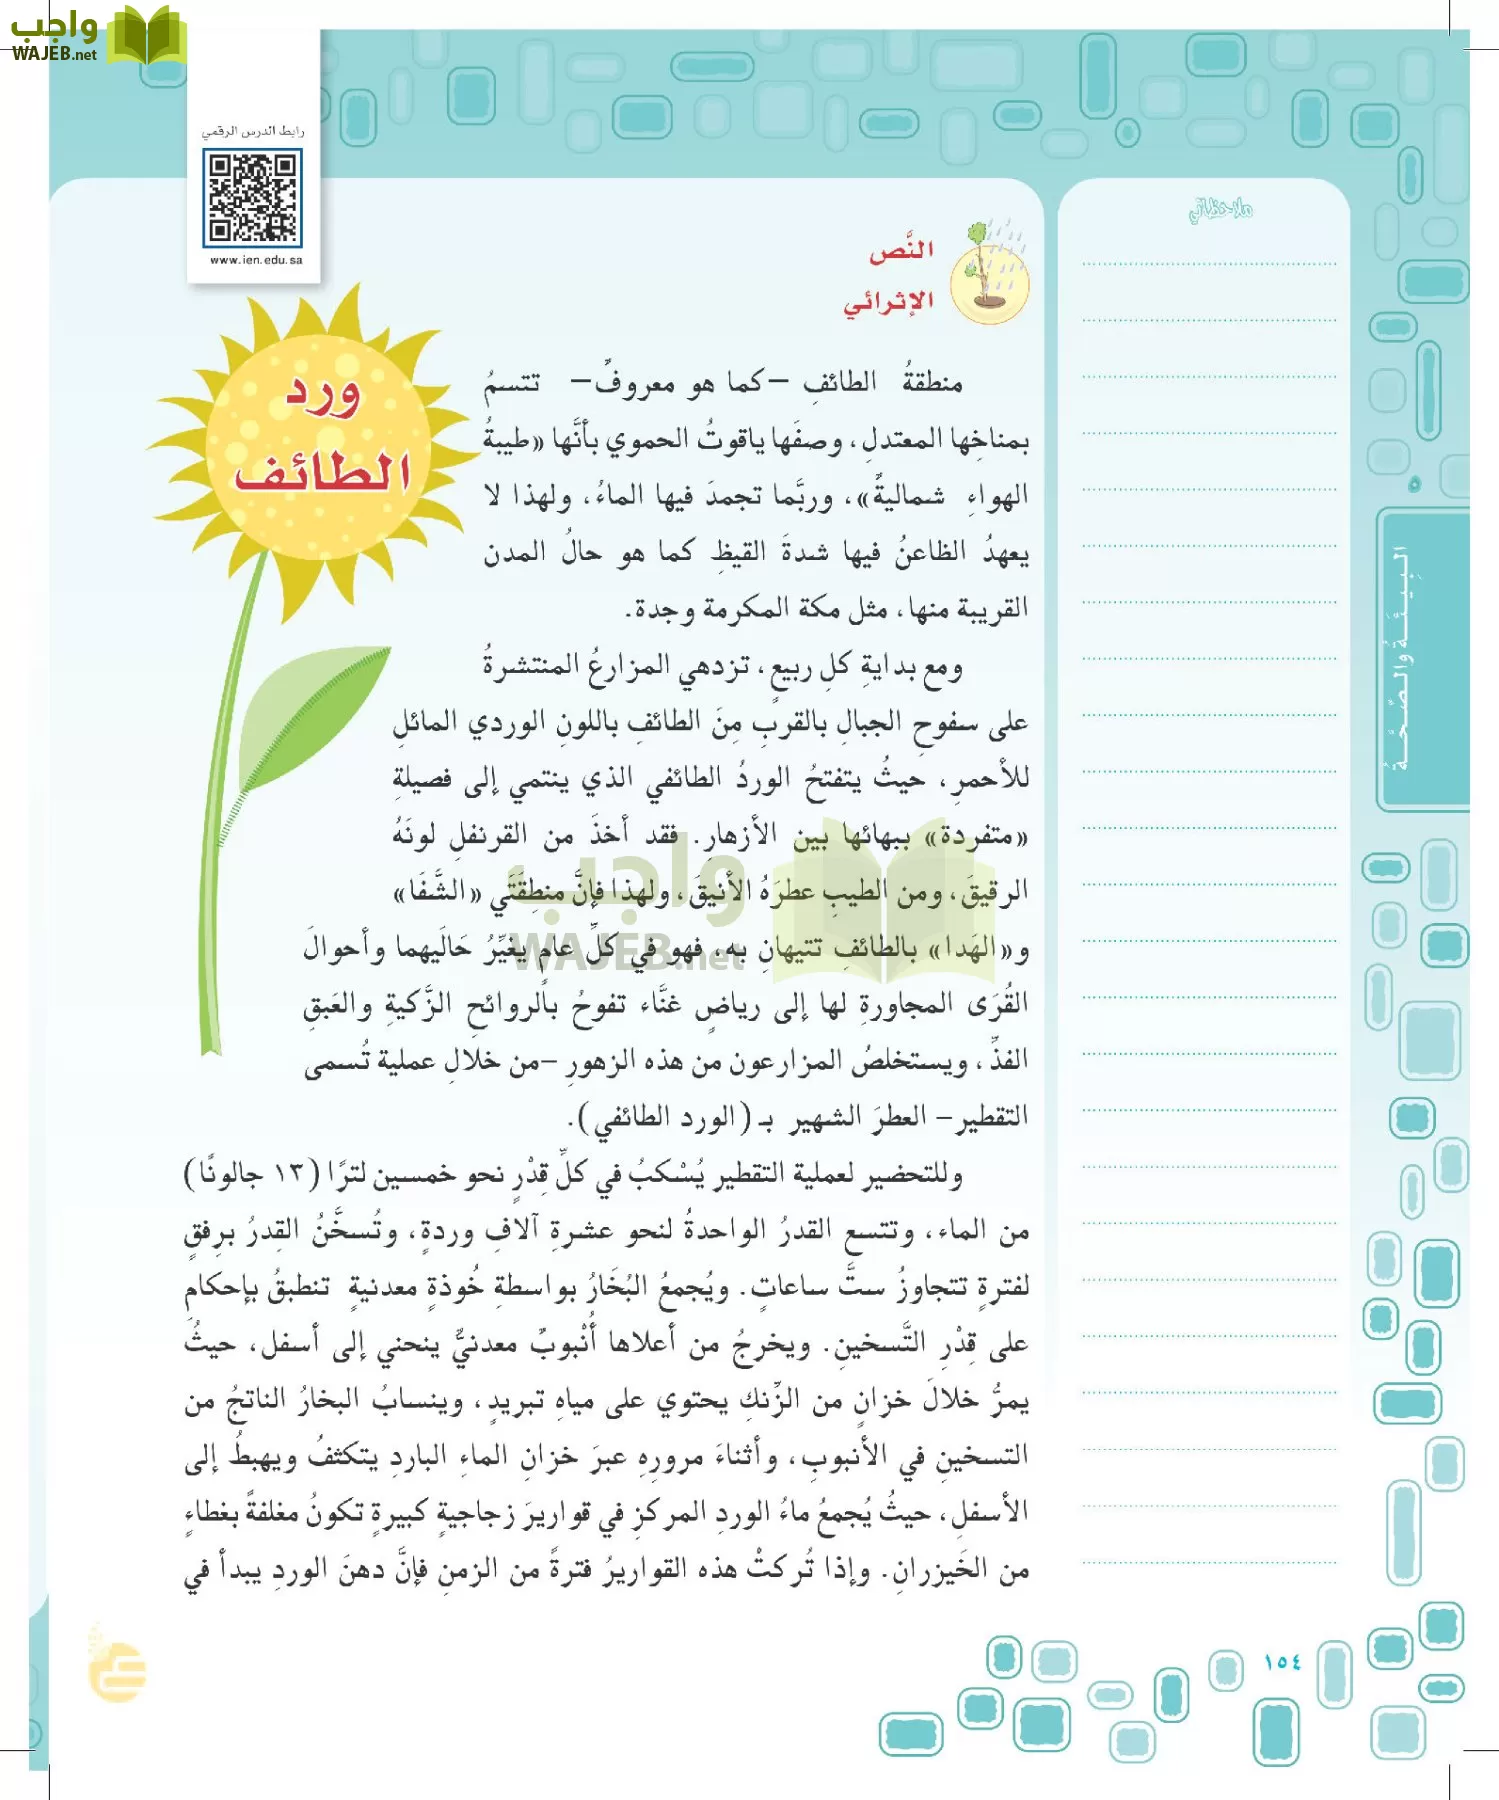 واجب
WAJEB.net
رابط الدرس الرقمي
www.ien.edu.sa
ملاحظاتي
النَّص
الإثرائي
ورد
الطائف
منطقةُ الطائفِ –كما هو معروفٌ– تتسمُ
بمناخِها المعتدلِ، وصفَها ياقوتُ الحموي بأنَّها «طيبةُ
الهواءِ شماليةٌ»، وربَّما تجمدَ فيها الماءُ، ولهذا لا
يعهدُ الظاعنُ فيها شدةَ القيظِ كما هو حالُ المدن
القريبة منها، مثل مكة المكرمة وجدة.
ومع بدايةِ كلِ ربيعٍ، تزدهي المزارعُ المنتشرةُ
على سفوحِ الجبالِ بالقربِ مِنَ الطائفِ باللونِ الوردي المائلِ
للأحمرِ، حيثُ يتفتحُ الوردُ الطائفي الذي ينتمي إلى فصيلةِ
«متفردة» ببهائها بين الأزهارِ. فقد أخذَ من القرنفلِ لونَهُ
الرقيقَ، ومن الطيبِ عطرَهُ الأنيقَ، ولهذا فإنَّ منطِقَتَي «الشَّفَا»
و«الهَدا» بالطائفِ تتيهانِ به، فهو في كلِّ عامٍ يغيِّرُ حَالَيهما وأحوالَ
القُرَى المجاورةِ لها إلى رياضٍ غنَّاء تفوحُ بالروائحِ الزَّكيةِ والعَبقِ
الفذِّ، ويستخلصُ المزارعون من هذه الزهورِ –من خلالِ عملية تُسمى
التقطير– العطرَ الشهير بـ (الورد الطائفي).
وللتحضير لعملية التقطير يُسْكبُ في كلِّ قِدْرٍ نحو خمسين لترًا (١٣ جالونًا)
من الماء، وتتسع القدرُ الواحدةُ لنحو عشرةِ آلافِ وردةٍ، وتُسخَّنُ القِدرُ برِفقٍ
لفترةٍ تتجاوزُ ستَّ ساعاتٍ. ويُجمعُ البُخَارُ بواسطةِ خُوذةٍ معدنيةٍ تنطبقُ بإحكامِ
على قِدْرِ التَّسخينِ. ويخرجُ من أعلاها أُنْبوبٌ معدنيٌّ ينحني إلى أسفل، حيثُ
يمرُّ خلالَ خزانٍ من الزِّنكِ يحتوي على مياهِ تبريدٍ، وينسابُ البخارُ الناتجُ من
التسخينِ في الأنبوبِ، وأثناءَ مرورهِ عبرَ خزانِ الماءِ الباردِ يتكثفُ ويهبطُ إلى
الأسفلِ، حيثُ يُجمعُ ماءُ الوردِ المركزِ في قواريرَ زجاجيةٍ كبيرةٍ تكونُ مغلفةً بغطاءٍ
من الخَيزرانِ. وإذا تُركتْ هذه القواريرُ فترةً من الزمنِ فإنَّ دهنَ الوردِ يبدأ في
البِيئَةُ والصِّحَّةُ
واجب
WAJEB.net
١٥٤